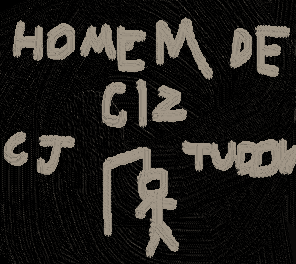 HOMEM DE
GIZ
CJ TUDOR